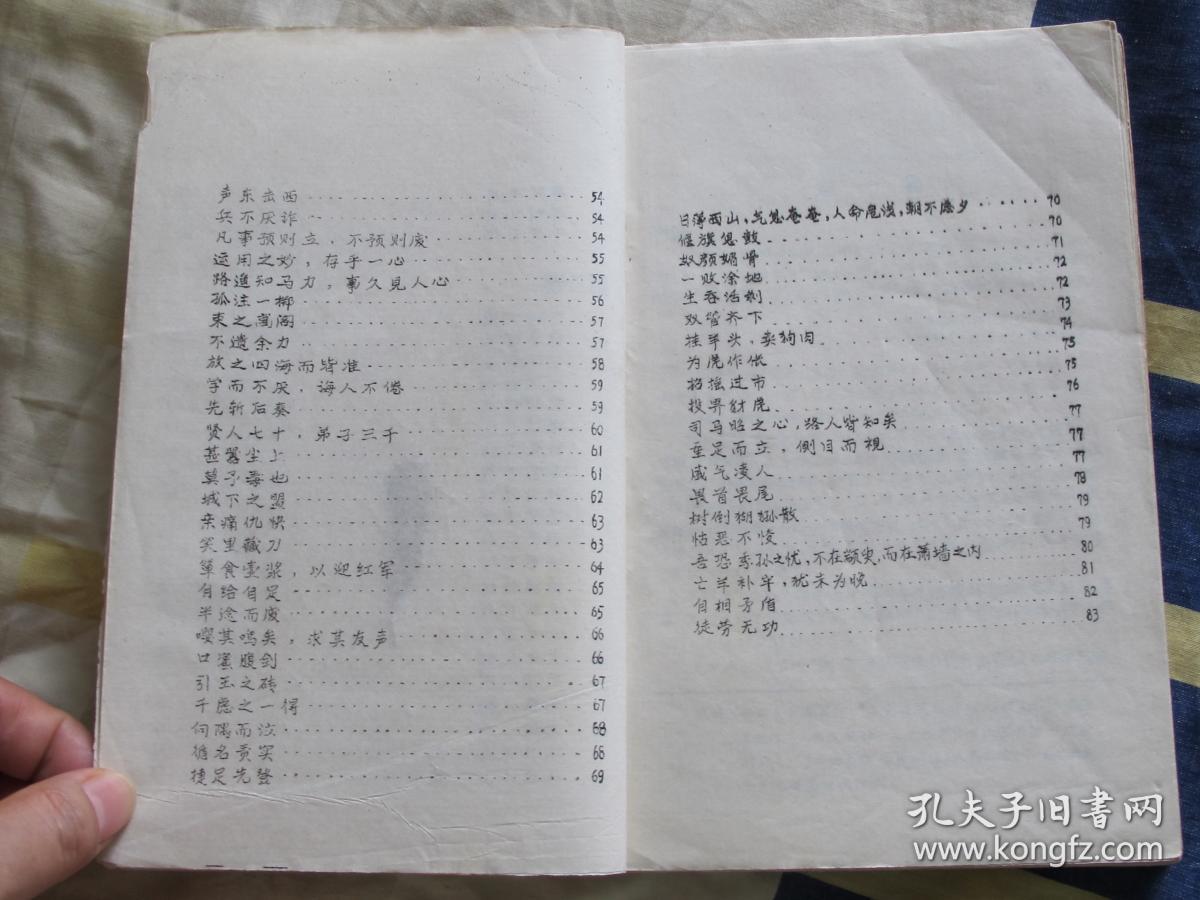 声东击西 54
兵不厌诈 54
凡事预则立，不预则废 54
运用之妙，存乎一心 55
路遥知马力，事久見人心 55
孤注一掷 56
束之高阁 57
不遗余力 57
放之四海而皆准 58
学而不厌，诲人不倦 59
先斩后奏 59
贤人七十，弟子三千 60
甚嚣尘上 61
莫予毒也 61
城下之盟 62
亲痛仇快 63
笑里藏刀 63
箪食壶浆，以迎红军 64
自给自足 65
半途而废 65
嘤其鸣矣，求其友声 66
口蜜腹剑 66
引玉之砖 67
千虑之一得 67
向隅而泣 68
循名责实 68
捷足先登 69
日薄西山，气息奄奄，人命危浅，朝不虑夕 70
偃旗息鼓 70
奴颜媚骨 71
一败涂地 72
生吞活剥 72
双管齐下 73
挂羊头，卖狗肉 74
为虎作伥 75
招摇过市 75
投畀豺虎 76
司马昭之心，路人皆知矣 77
重足而立，侧目而視 77
盛气凌人 77
畏首畏尾 78
树倒猢狲散 79
怙恶不悛 79
吾恐季孙之忧，不在颛臾，而在萧墙之内 80
亡羊补牢，犹未为晚 81
自相矛盾 82
徒劳无功 83
孔夫子旧书网
www.kongfz.com